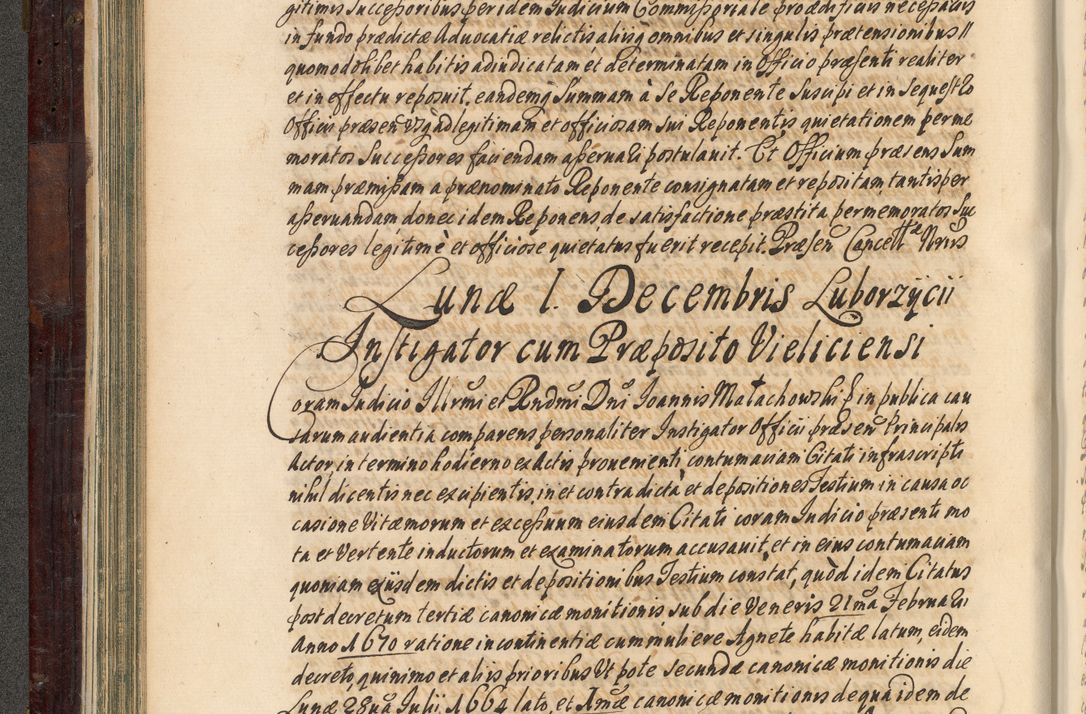 gitimis Successoribus per idem Judicium Commissoriale pro ædificiis necessariis
in fundo prædictæ Advocatiæ relictis aliisq omnibus et singulis prætensionibus
quomodolibet habitis adindicatam et determinatam in Officio præsenti realiter
et in effectu reposuit, eandemq Summam à Se Reponente Suscipi et in Sequestro
Officii præsen usq ad legitimam et officiosam sui Reponentis quietationem per me
moratos Successores faciendam asservari postulavit. Et Officium præsens Sum
mam præmissam a prænominato Reponente consignatam et repositam tantisper
asservandam donec idem Reponens de satisfactione præstita per memoratos Suc
cessores legitimè et officiose quietatus fuerit recepit. Præsen Cancell
Lunæ 1. Decembris Luborzÿcii
Instigator cum Præposito Vieliciensi
Coram Judicio Illrmi et Rndmi Dni Joannis Małachowski E in publica cau
sarum audientia comparens personaliter Instigator Officii præsen Principalis
Actor, in termino hodierno ex Actis provenienti, contumaciam Citati infrascripti
nihil dicentis nec excipientis, in et contra dicta et depositiones Testium in causa oc
casione Vitæ morum et excessuum eiusdem Citati coram Judicio præsenti mo
ta et Vertente inductorum et examinatorum accusavit, et in eius contumaciam
quoniam ex ijsdem dictis et depositionibus Testium constat, quòd idem Citatus
post decretum tertiæ canonicæ monitionis sub die Veneris 21ma Februarii
Anno 1670 ratione incontinentiæ cum muliere Agnete habitæ latum, eidem
decreto, quinimo et aliis prioribus Ut pote secundæ canonicæ monitionis die
Lunæ 28va Julii 1664 lato, et 1mæ canonicæ monitionis de qua idem de